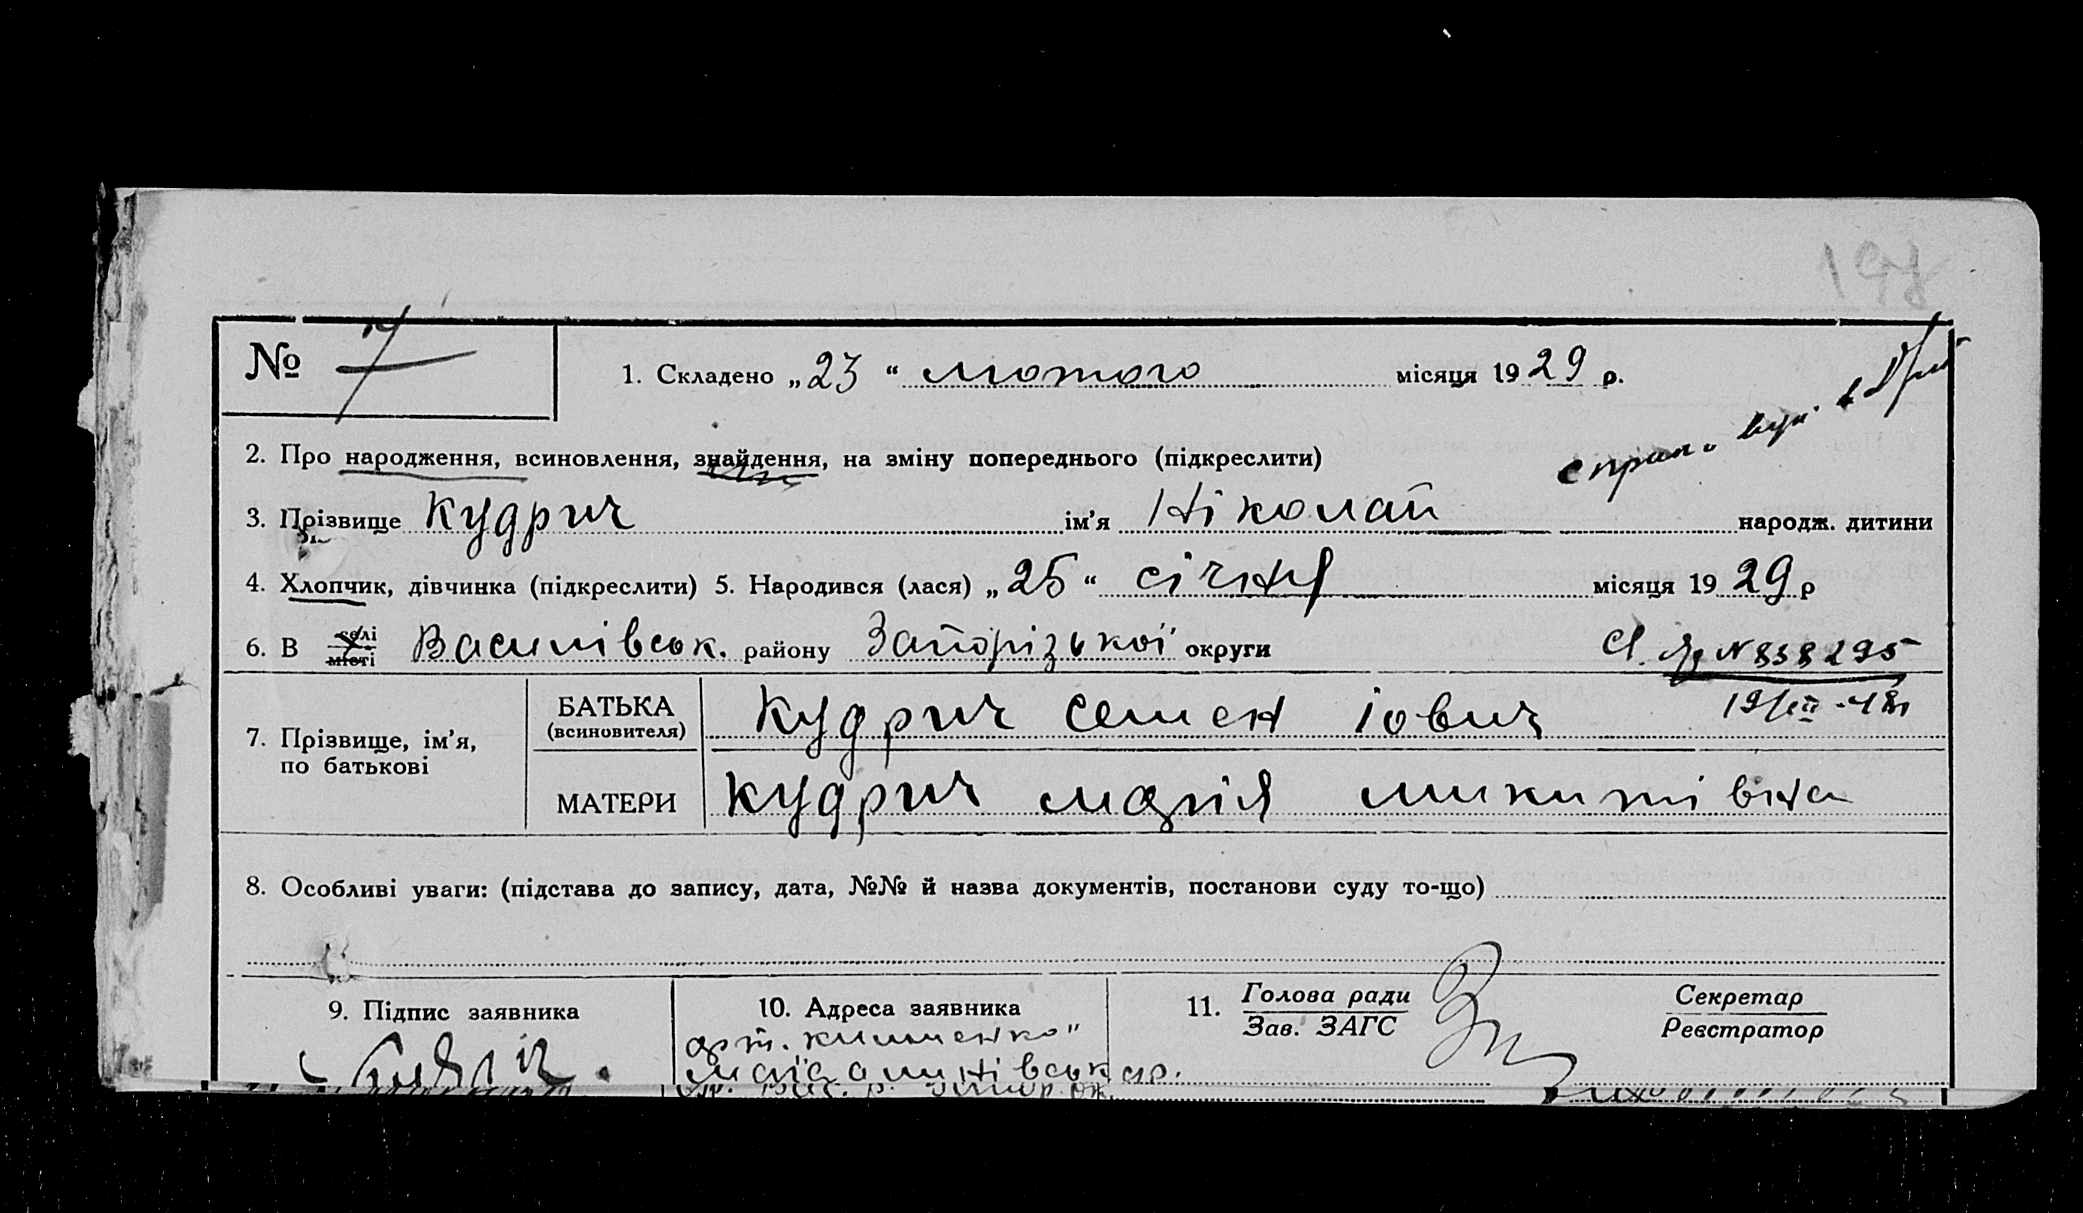 198
№ 7
1. Складено „23“ лютого місяця 1929 р.
2. Про народження, всиновлення, знайдення, на зміну попереднього (підкреслити)
3. Прізвище Кудрич ім’я Ніколай народж. дитини
4. Хлопчик, дівчинка (підкреслити) 5. Народився (лася) „25“ січня місяця 1929 р
6. В селі місті Василівськ. району Запорізької округи
№ 838295
7. Прізвище, ім’я, по батькові
БАТЬКА (всиновителя) Кудрич Семен Іович
МАТЕРИ Кудрич Марія Микитівна
8. Особливі уваги: (підстава до запису, дата, №№ й назва документів, постанови суду то-що)
9. Підпис заявника
10. Адреса заявника
11. Голова ради
Зав. ЗАГС
Секретар
Реєстратор